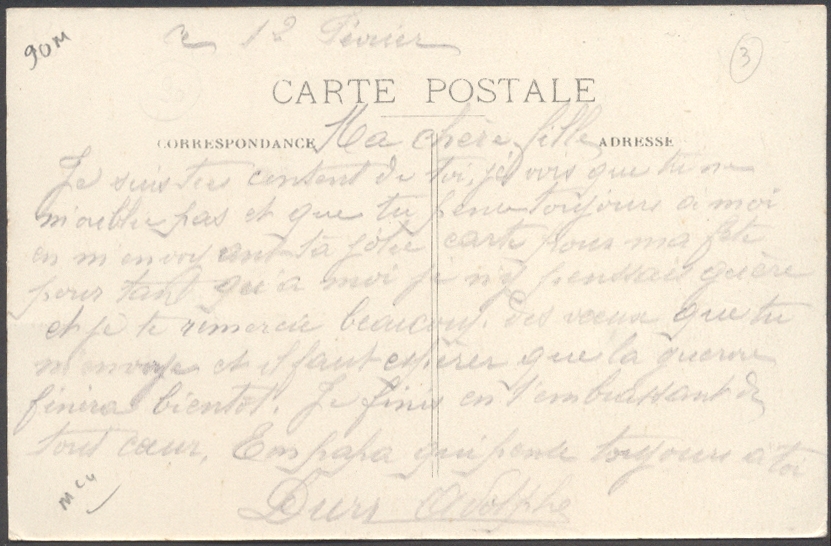 90M
ce 12 Février
3
CARTE POSTALE
CORRESPONDANCE Ma chère fille ADRESSE
Je suis tres content de toi, je vois que tu ne
m'oublie pas et que tu pense toujours a moi
en m'envoyant ta jolie carte pour ma fete
pour tant qu'a moi je n'y penssais guère
et je te remercie beaucoup des vœux que tu
m'envoye et il faut espérer que la guerre
finira bientot. Je finis en t'embrassant de
tout cœur. Ton papa qui pense toujours a toi
Durr Adolphe